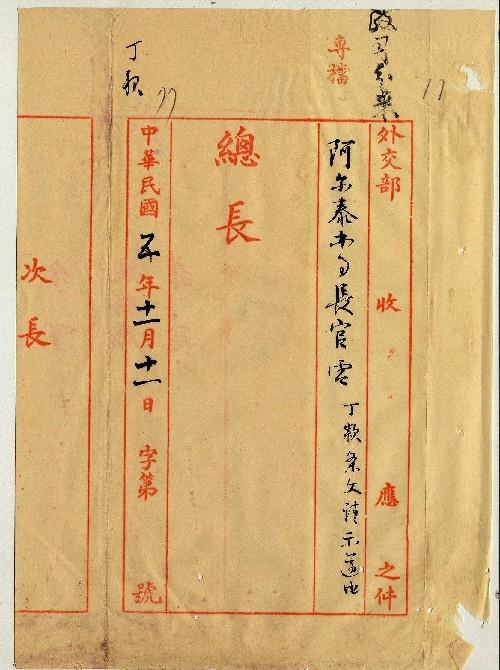 外交部收應之件
專檔
阿尔泰办事長官電 丁款条文請示遵由
總長
中華民國五年十一月十一日字第號
丁款
次長